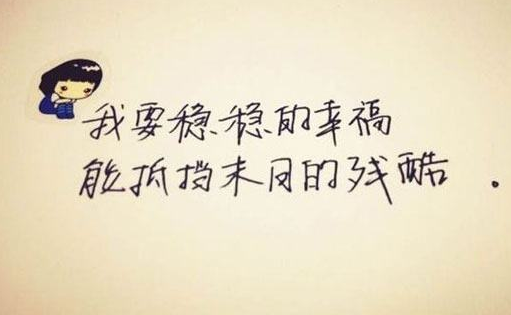 我要稳稳的幸福
能抵挡末日的残酷.